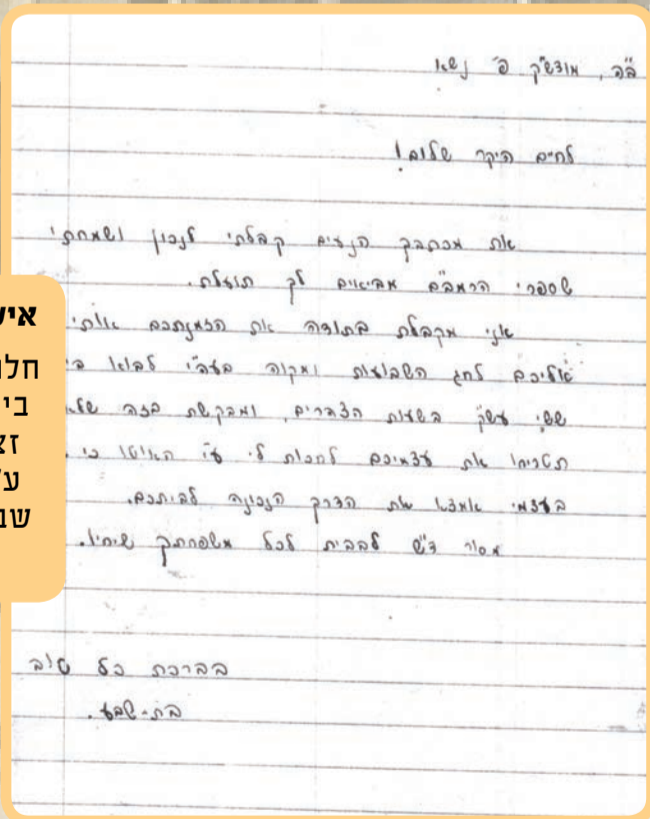 ב"ה, מוצש"ק פ' נשא
לחיים היקר שלום!
את מכתבך הנעים קבלתי לנכון ושמחתי
שספרי הרמב"ם מביאים לך תועלת.
אני מקבלת בתודה את הזמנתכם אותי
אליכם לחג השבועות ומקוה בעז"י לבוא
ששי עש"ק בשעות הצהרים, ומבקשת בזה שלא
תטריחו את עצמיכם לחכות לי ע"י האוטו כי
בעצמי אמצא את הדרך הנכונה לביתכם.
מסור ד"ש לבבית לכל משפחתך שיחיו.
בברכת כל טוב
בת-שבע.